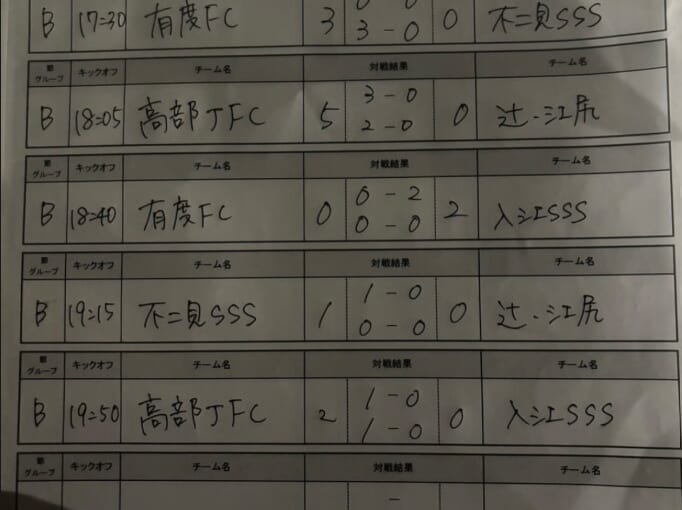 B 17:30 有度FC 3 3-0 0 不二見SSS
節グループ キックオフ チーム名 対戦結果 チーム名
B 18:05 高部JFC 5 3-0 2-0 0 辻・江尻
節グループ キックオフ チーム名 対戦結果 チーム名
B 18:40 有度FC 0 0-2 0-0 2 入江SSS
節グループ キックオフ チーム名 対戦結果 チーム名
B 19:15 不二見SSS 1 1-0 0-0 0 辻・江尻
節グループ キックオフ チーム名 対戦結果 チーム名
B 19:50 高部JFC 2 1-0 1-0 0 入江SSS
節グループ キックオフ チーム名 対戦結果 チーム名
-